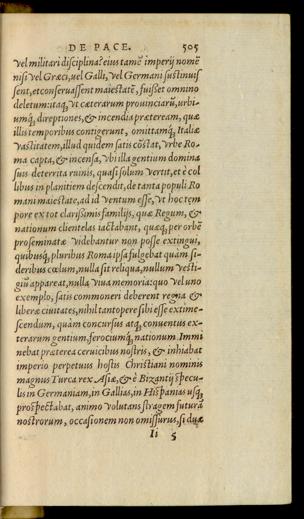 DE PACE. 505
vel militari disciplina? eius tamẽ imperij nomẽ
nisi vel Græci, uel Galli, vel Germani sustinuis
sent, et conseruassent maiestatẽ, fuisset omnino
deletum: itaq, vt cæterarum prouinciarũ, urbi-
umq́, direptiones, & incendia præteream, quæ
illis temporibus contigerunt, omittamq́, Italiæ
vastitatem, illud quidem satis cõstat, vrbe Ro-
ma capta, & incensa, vbi illa gentium domina
suis deterrita ruinis, quasi solum vertit, et è col
libus in planitiem descendit, de tanta populi Ro
mani maiestate, ad id ventum esse, vt hoc tem
pore ex tot clarissimis familijs, quæ Regum, &
nationum clientelas iactabant, quæq, per orbẽ
proseminatæ videbantur non posse extingui,
quibusq́, pluribus Roma ipsa fulgebat quàm si-
deribus cœlum, nulla sit reliqua, nullum vesti-
giũ appareat, nulla viua memoria: quo vel uno
exemplo, satis commoneri deberent regna &
liberæ ciuitates, nihil tantopere sibi esse extime-
scendum, quàm concursus atq, conuentus ex-
terarum gentium, ferociumq́, nationum. Immi
nebat præterea ceruicibus nostris, & inhiabat
imperio perpetuus hostis Christiani nominis
magnus Turca rex Asiæ, & è Bizantij specu-
lis in Germaniam, in Gallias, in Hispanias usq,
prospectabat, animo volutans stragem futurã
nostrorum, occasionem non omissurus, si duæ
Ii 5